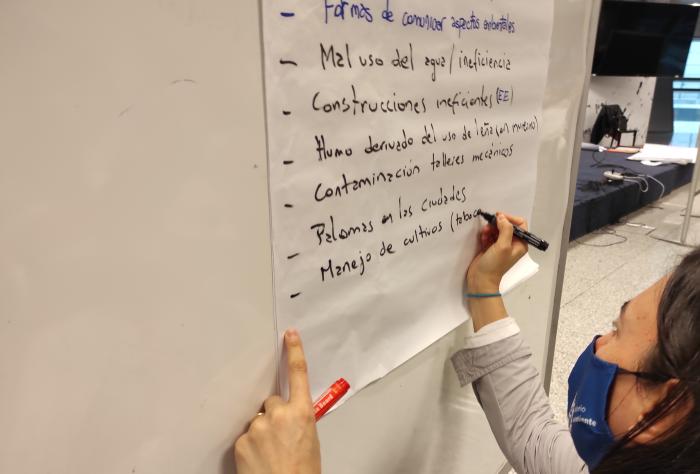 - Formas de comunicar aspectos ambientales
- Mal uso del agua / ineficiencia
- Construcciones ineficientes (EE)
- Humo derivado del uso de leña (en invierno)
- Contaminación talleres mecánicos
- Palomas en las ciudades
- Manejo de cultivos (tabaco